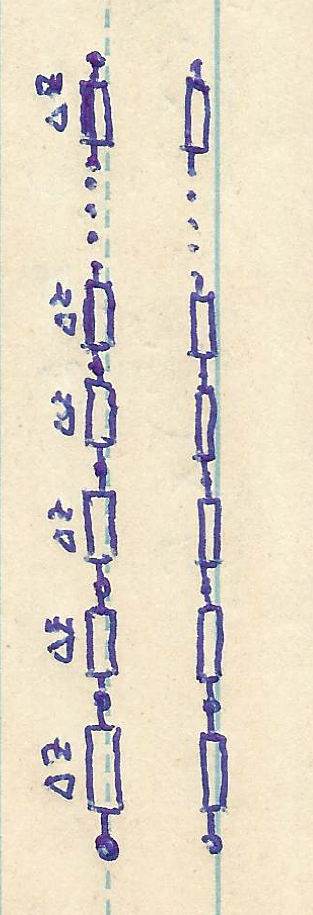 ΔZ ΔZ ΔZ ΔZ ΔZ ... ΔZ